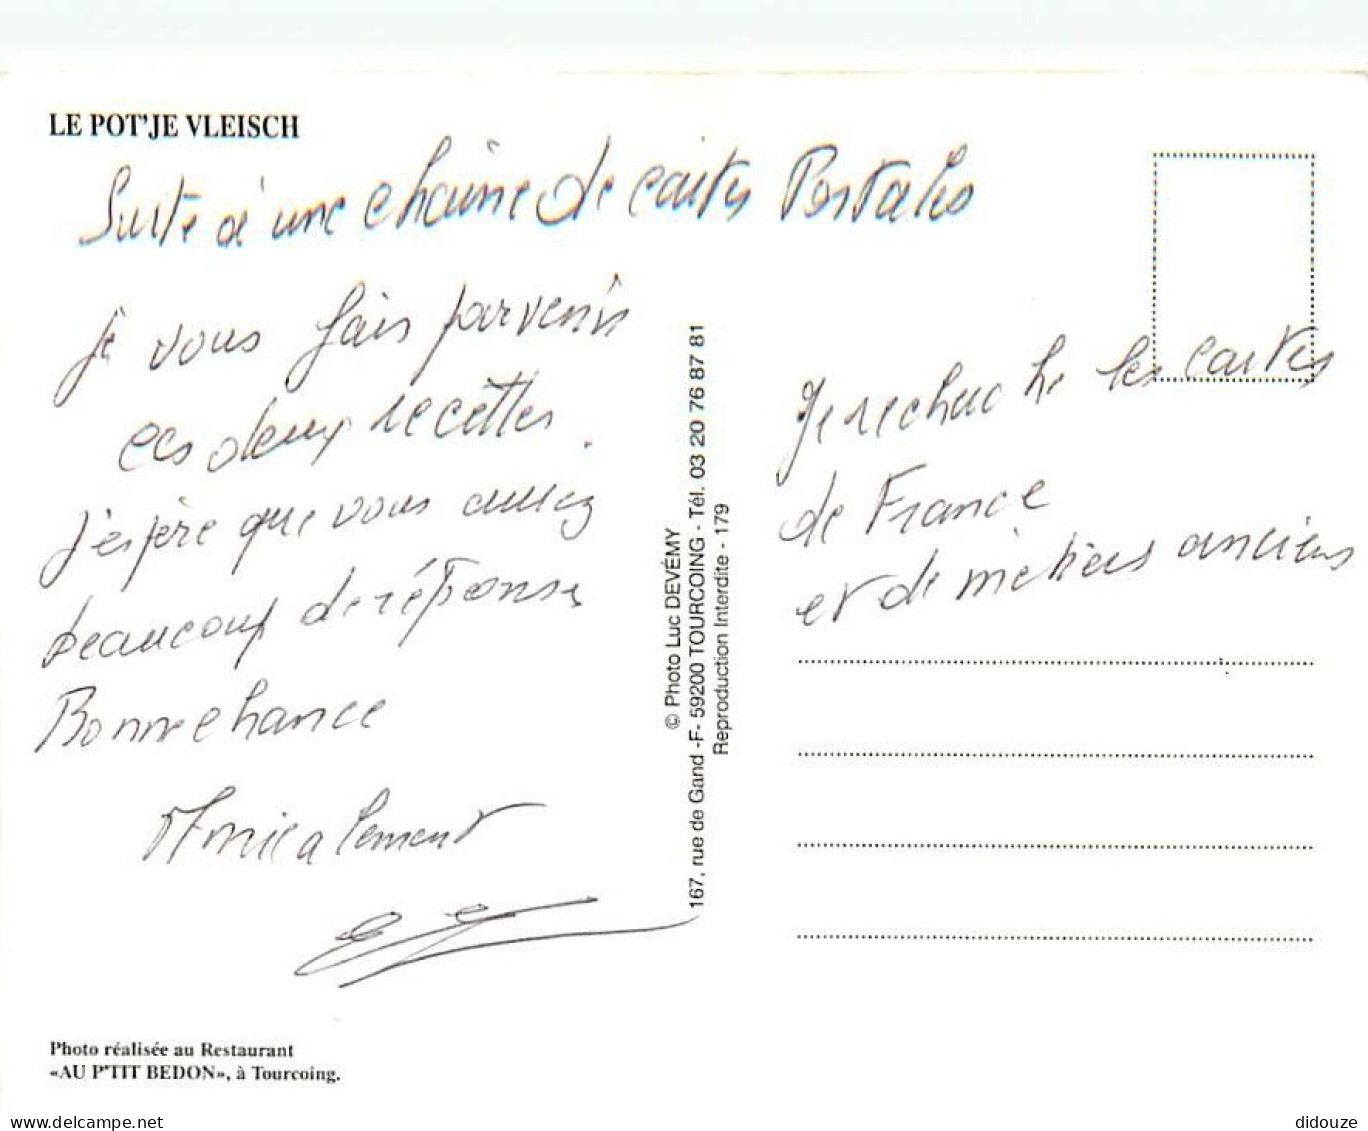 LE POT'JE VLEISCH
Suite à une chaîne de cartes Postales
je vous fais parvenir
ces deux recettes.
j'espère que vous aurez
beaucoup de réponses
Bonne chance
Amicalement
© Photo Luc DEVÉMY
167, rue de Gand -F- 59200 TOURCOING - Tél. 03 20 76 87 81
Reproduction Interdite - 179
Je recherche les cartes
de France
et de métiers anciens
Photo réalisée au Restaurant
«AU P'TIT BEDON», à Tourcoing.
delcampe.net
didouze